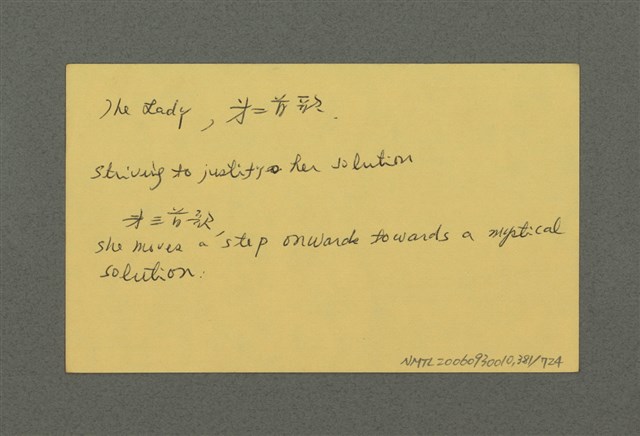 The Lady, 才二首歌.
striving to justify her solution
才三首歌
she moves a step onwards towards a mystical
solution.
NMTL20060930010,381/724